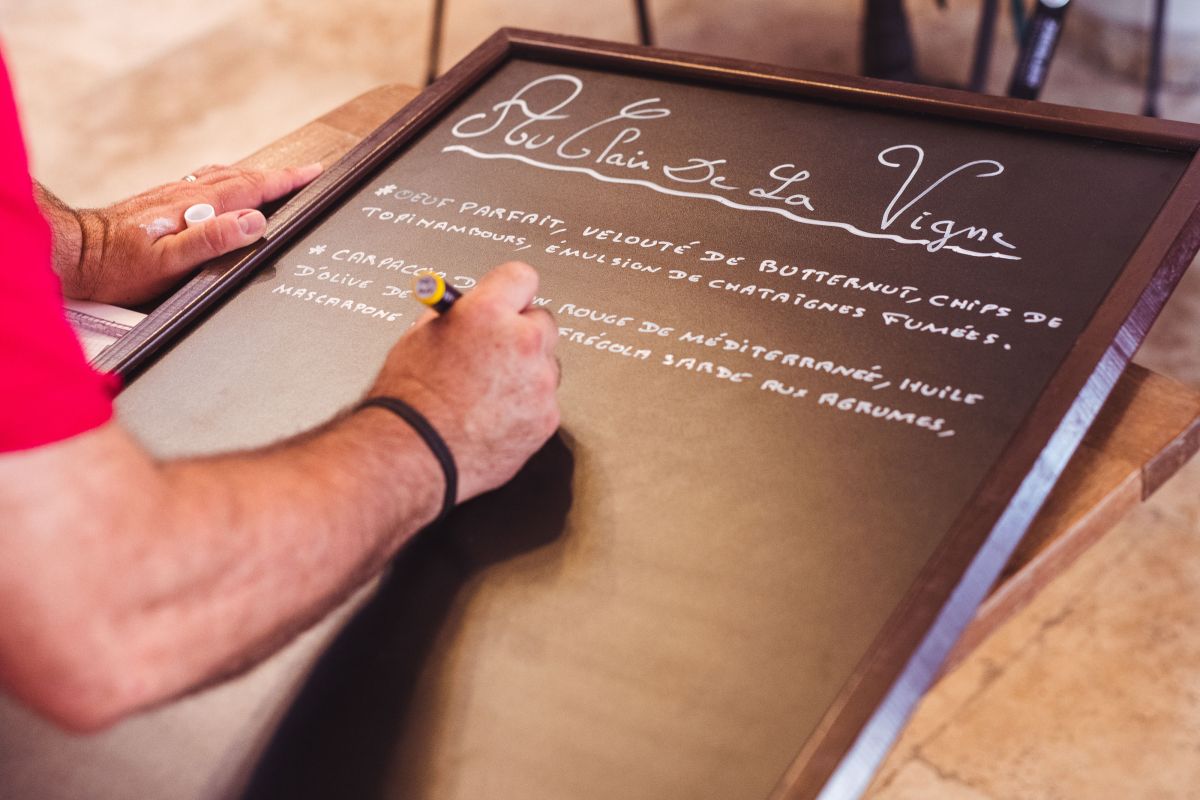 Au Clair De La Vigne
* OEUF PARFAIT, VELOUTÉ DE BUTTERNUT, CHIPS DE
TOPINAMBOURS, ÉMULSION DE CHATAIGNES FUMÉES.
* CARPACCIO ROUGE DE MÉDITERRANÉE, HUILE
D'OLIVE DE FREGOLA SARDE AUX AGRUMES,
MASCARPONE